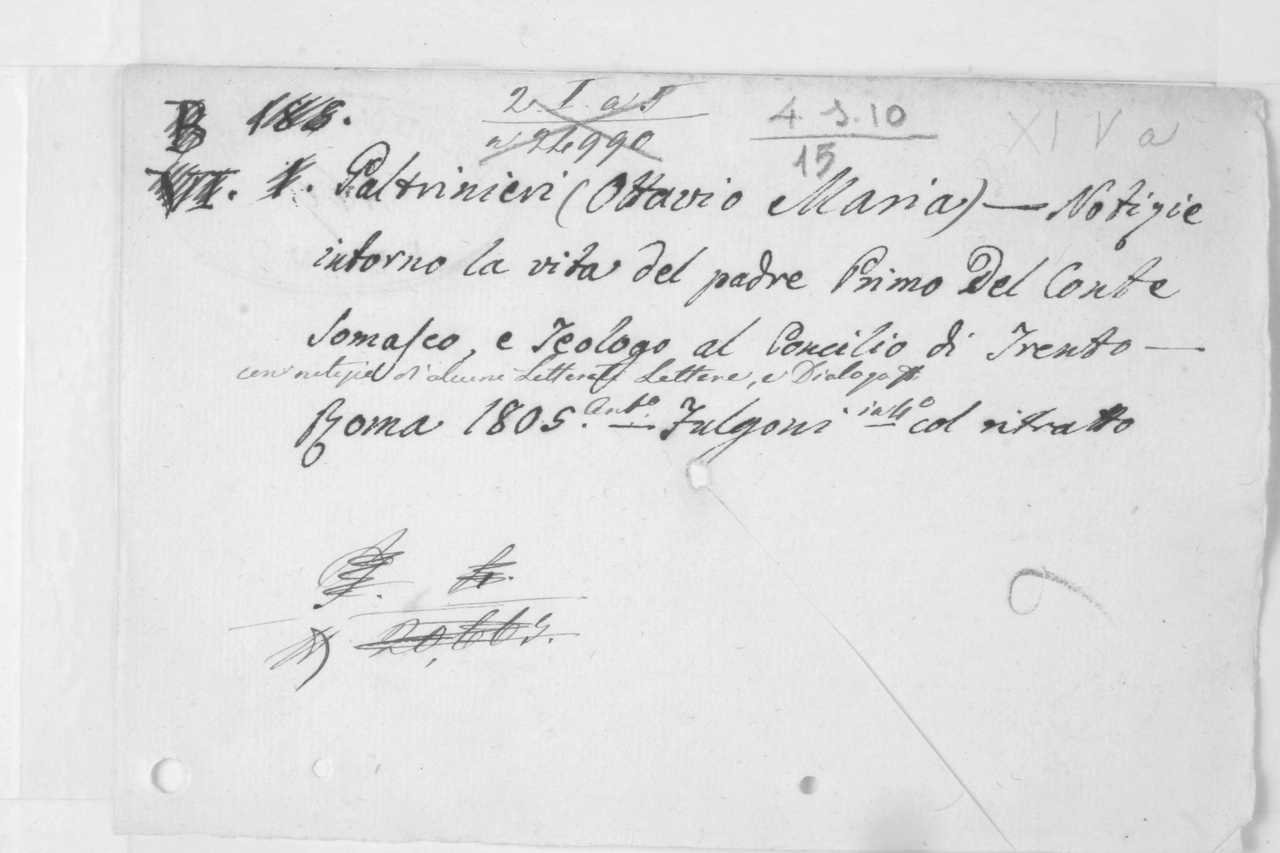 B 188.
2. I. a 5
n. 24990
4. J. 10
15
XI V a
VI. 1. Paltrinieri (Ottavio Maria) — Notizie
intorno la vita del padre Primo Del Conte
Somasco, e Teologo al Concilio di Trento —
con notizie d'alcuni Letterati Lettere, e Dialogo
Roma 1805. Ant.o Fulgoni in 4o col ritratto
20,663.